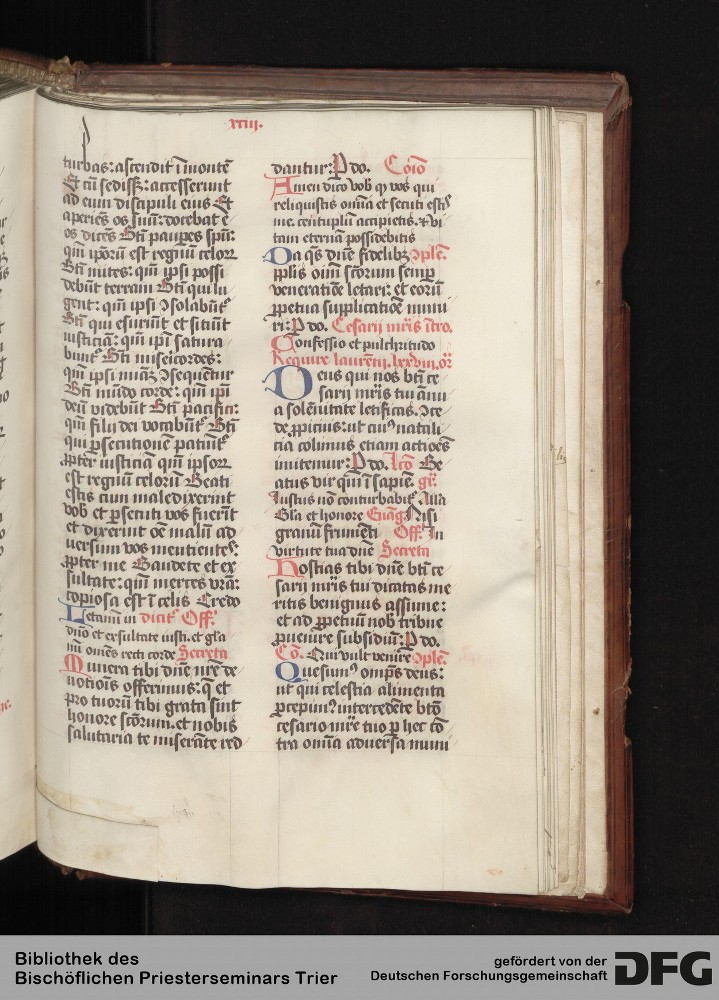 xciii.
turbas: ascendit ī montē
Et cū sedissꝫ: accesserunt
ad eum discipuli eius Et
aperiēs os suū: docebat eos
dicēs Bti paupes spū:
qm̄ ip̄oꝝ est regnū celoꝝ
Bti mites: qm̄ ipsi possi
debūt terram Bti qui lu
gent: qm̄ ipsi ↄsolabūtᷣ
Bti qui esuriūt et sitiūt
iusticiā: qm̄ ip̄i satura
bunᷣt Bti misericordes:
qm̄ ipsi miāꝫ ↄsequētur
Bti mūdo corde: qm̄ ip̄i
deū videbūt Bti pacifici:
qm̄ filij dei vocabūtᷣ Bti
qui ꝑsecutionē patiūtᷣ
ꝓpter iusticiā qm̄ ipsoꝝ
est regnū celorū Beati
estis cum maledixerint
vob et ꝑsecuti vos fuerīt
et dixerint oē malū ad
uersum vos mentientes:
ꝓpter me Gaudete et ex
sultate: qm̄ merces vr̄a:
copiosa est ī celis Credo
Letamī in dicit᷑ Off᷑.
dn̄o et exsultate iusti. et gl̄a
mī om̄es recti corde Secreta
Munera tibi dn̄e nr̄e de
uotiōis offerimus: q̄ et
pro tuorū tibi grata sint
honore sc̄orum. et nobis
salutaria te miserāte red
dantur: P do. Cōio
Amen dico vob ꝙ vos qui
reliquistis om̄ia et secuti estꝭ
me. centuplū accipietis. ⁊ vi
tam eternā possidebitis
Da qs dn̄e fidelibꝫ ↄplē.
pplis oīm sc̄orum semꝑ
veneratiōe letari: et eorū
ꝑpetua supplicatiōe muni
ri: P do. Cesarij mr̄is ītro.
Confessio et pulchritudo
Require laurētij. lxxviii. or̄
Deus qui nos btī ce
sarij mr̄is tui ānu
a solēnitate letificas. ↄce
de ꝓpicius: ut cuiꝰ natali
cia colimus etiam actiōes
imitemur: P do. lcō Be
atus vir qui ī sapiē. gr̄.
Iustus nō conturbabitᷣ Alla
Gl̄a et honore Euāg. Nisi
granū frumēti Off᷑. In
virtute tua dn̄e Secreta
Hostias tibi dn̄e btī ce
sarij mr̄is tui dicatas me
ritis benignus assume:
et ad ꝑpetuū nob tribue
ꝓuenire subsidiū: P do.
Cō. Qui vult venire ↄplē.
Quesumꝰ omp̄s deus:
ut qui celestia alimenta
ꝑcepimꝰ intercedēte btō
cesario mr̄e tuo ꝑ hec cō
tra om̄ia aduersa muni
Bibliothek des
Bischöflichen Priesterseminars Trier
gefördert von der
Deutschen Forschungsgemeinschaft
DFG